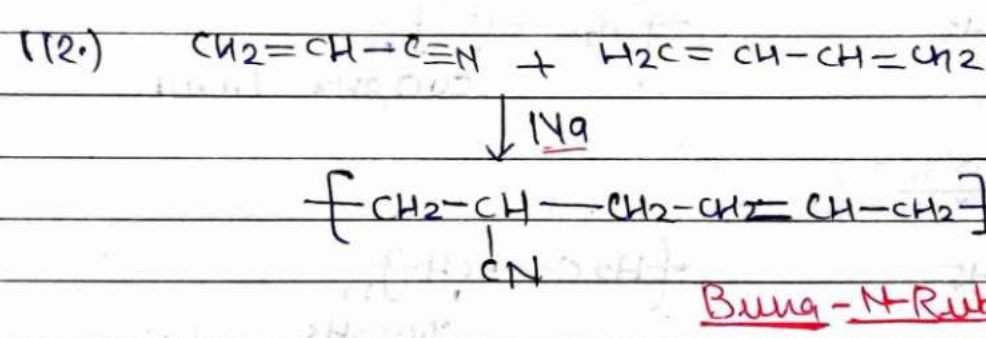 112.) CH2=CH-C≡N + H2C=CH-CH=CH2
↓ Na
[CH2-CH-CH2-CH2=CH-CH2]
CN
Buna-N-Rub